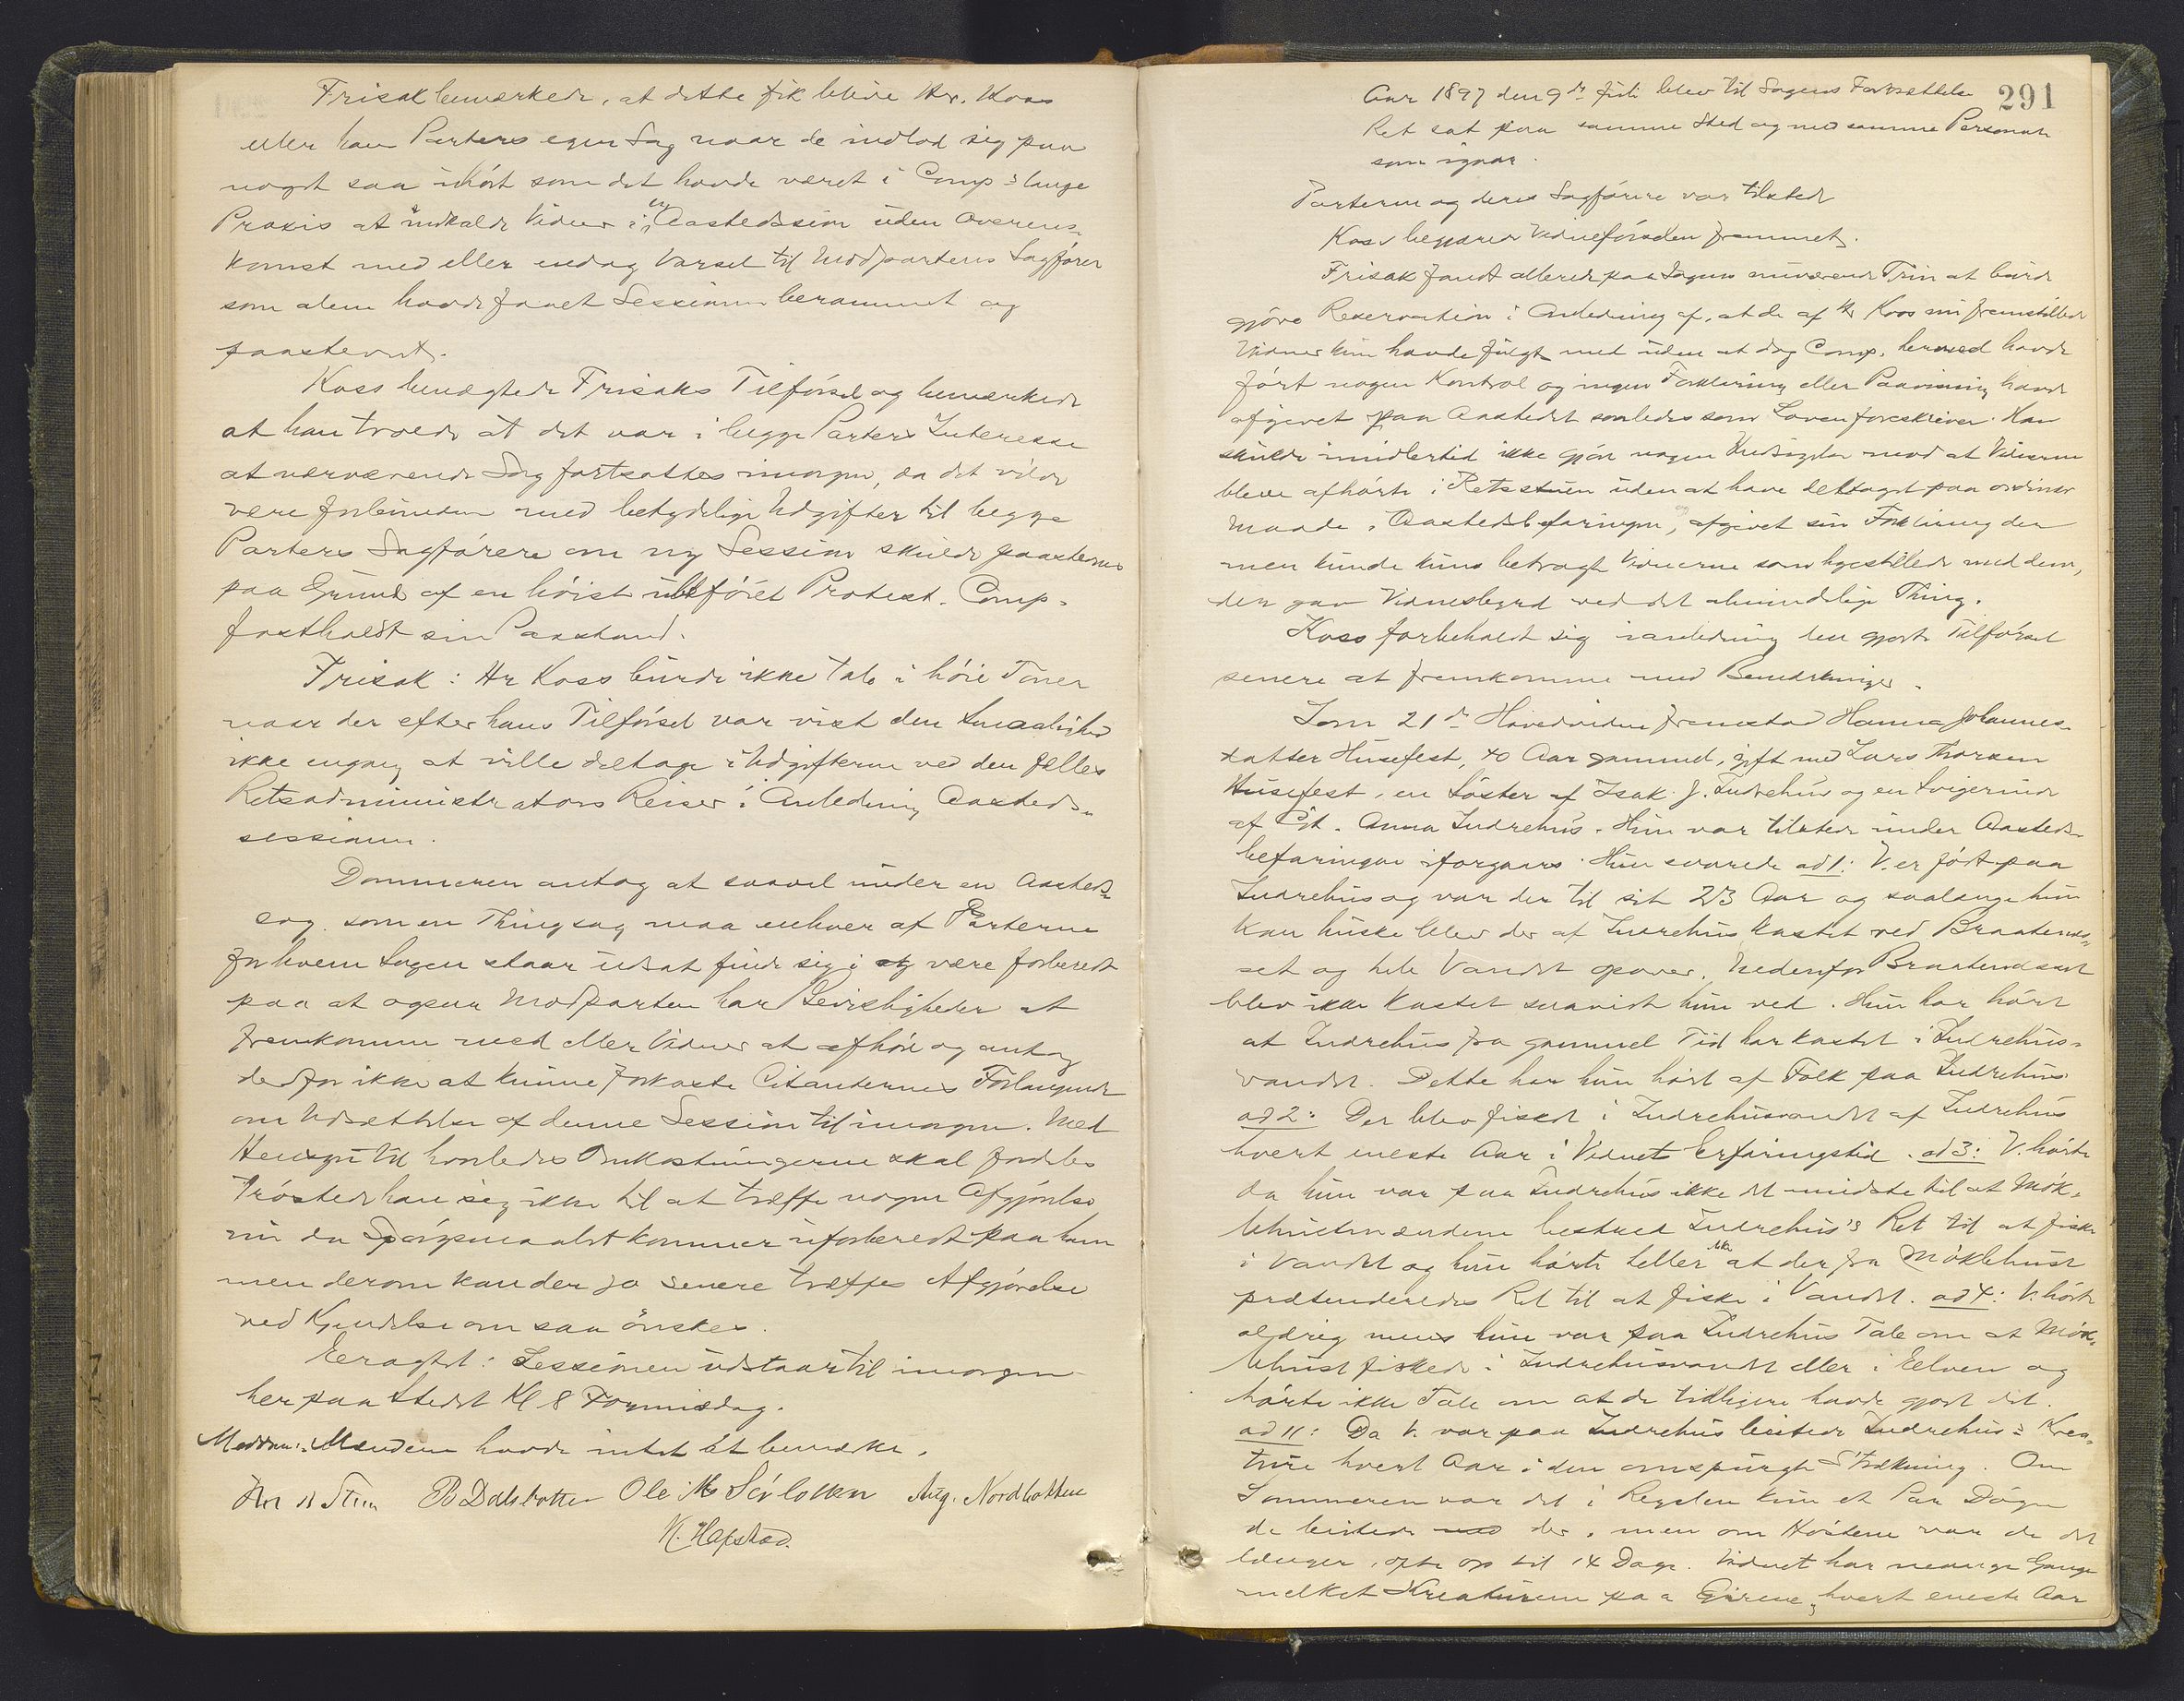 Frisak bemærkede, at dette fik blive Hr. Koss
eller hans Parters egen Sag naar de indlod sig paa
noget saa uhørt som det havde været i Comp's lange
Praxis at indkalde Vidner i en Aastedssession uden Overens-
komst med eller endog Varsel til Modpartens Sagfører
som alene havde faaet Sessionen berammet og
paastevnt.
Koss benægtede Frisaks Tilførsel og bemærkede
at han troede at det var i begge Parters Interesse
at nærværende Sag fortsattes imorgen, da det vilde
være forbunden med betydelige Udgifter til begge
Parters Sagførere om ny Session skulde paastevnes
paa Grund af en høist ubeføiet Protest. Comp.
fastholdt sin Paastand.
Frisak: Hr Koss burde ikke tale i høie Toner
naar der efter hans Tilførsel var vist den Smaalighed
ikke engang at ville deltage i Udgifterne ved den fælles
Retsadministrators Reiser i Anledning Aasteds-
sessionen.
Dommeren antog at saavel under en Aasteds-
sag som en Thingsag maa enhver af Parterne
for hvem Sagen staar udsat finde sig i at være forberedt
paa at ogsaa Modparten har Bevisligheder at
fremkomme med eller Vidner at afhøre og antog
derfor ikke at kunne forkaste Citanternes Forlangende
om Udsættelse af denne Session til imorgen. Med
Hensyn til hvorledes Omkostningerne skal fordeles
trøsted han sig ikke til at træffe nogen Afgjørelse
nu da Spørgsmaalet kommer uforberedt paa ham
men derom kan der jo senere træffes Afgjørelse
ved Kjendelse om saa ønskes.
Eragtet: Sessionen udstaar til imorgen
her paa Stedet Kl 8 Formiddag.
Meddoms-Mændene havde intet at bemærke.
B Dalsbotten Ole Aug. Nordbotten
K. Hafstad.
291
Aar 1897 den 9de Juli blev til Sagens Fortsættelse
Ret sat paa samme Sted og med samme Personale
som igaar.
Parterne og deres Sagførere var tilstede
Koss begjærede Vidneførselen fremmet.
Frisak fandt allerede paa Sagens nuværende Trin at burde
gjøre Reservation i Anledning af, at de af Hr Koss nu fremstillede
Vidner kun havde fulgt med uden at dog Comp. hermed havde
ført nogen Kontrol og ingen Forklaring eller Paavisning havde
afgivet paa Aastedet saaledes som Loven foreskriver. Han
skulde imidlertid ikke gjøre nogen Indsigelse mod at Vidnerne
bleve afhørte i Retsstuen uden at have deltaget paa ordinær
Maade i Aastedsbefaringen, og afgivet sin Forklaring der
men kunde kuns betragte Vidnerne som ligestillede med dem,
der gav Vidnesbyrd ved det almindelige Thing.
Koss forbeholdt sig i anledning den gjorte Tilførsel
senere at fremkomme med Bemærkninger.
Som 21de Hovedvidne fremstod Hanna Johannes-
datter Husefest, 40 Aar gammel, gift med Lars Thorsen
Husefest, en Søster af Isak J. Indrehus og en Svigerinde
af Cit. Anna Indrehus. Hun var tilstede under Aasteds-
befaringen iforgaars. Hun svarede ad 1: V. er født paa
Indrehus og var der til sit 23 Aar og saalænge hun
kan huske blev der af Indrehus kastet ved Braatenæs-
set og hele Vandet opover. Nedenfor Braatenæsset
blev ikke kastet saavidt hun ved. Hun har hørt
at Indrehus fra gammel Tid har kastet i Indrehus-
vandet. Dette har hun hørt af Folk paa Indrehus
ad 2: Der blev fisket i Indrehusvandet af Indrehus
hvert eneste Aar i Vidnets Erfaringstid. ad 3: V. hørte
da hun var paa Indrehus ikke det mindste til at Møk-
lehusmændene bestred Indrehus's Ret til at fiske
i Vandet og hun hørte heller ikke at der fra Møklehust
prætenderedes Ret til at fiske i Vandet. ad 4: V. hørte
aldrig mens hun var paa Indrehus Tale om at Møk-
lehust fiskede i Indrehusvandet eller i Elven og
hørte ikke Tale om at de tidligere havde gjort det.
ad 11: Da V. var paa Indrehus beitede Indrehus's Krea-
ture hvert Aar i den omspurgte Strækning. Om
Sommeren var det i Regelen kun et Par Døgn
de beitede der, men om Høstene var de det
længer, ofte op til 14 Dage. Vidnet har mange Gange
melket Kreaturene paa hvert eneste Aar